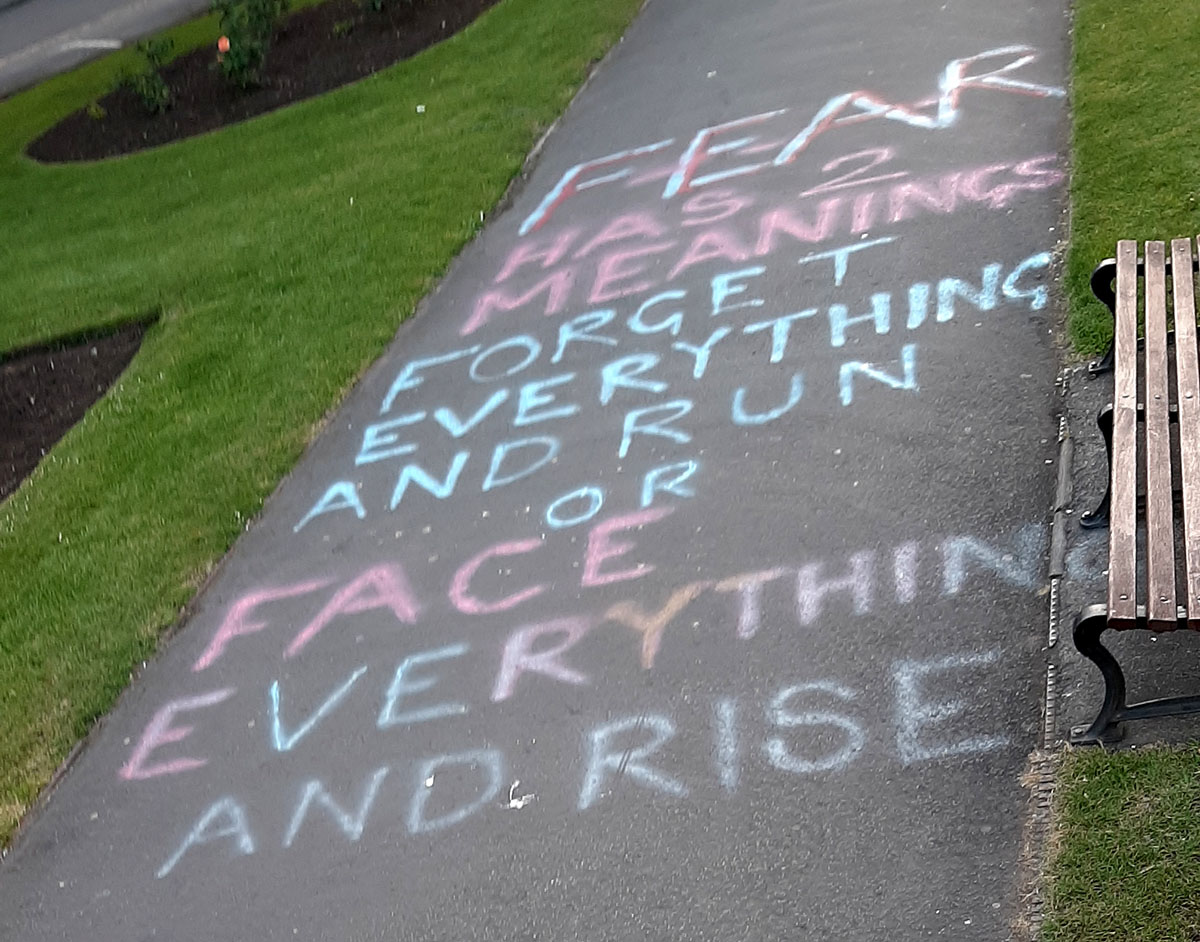 FEAR
HAS 2
MEANINGS
FORGET
EVERYTHING
AND RUN
OR
FACE
EVERYTHING
AND RISE